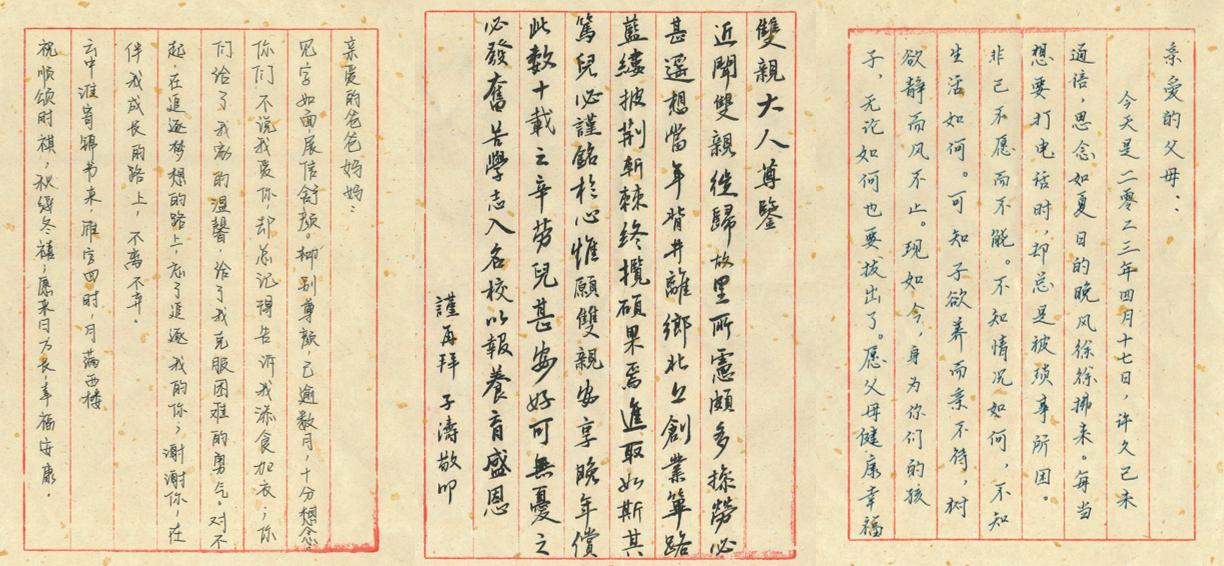 亲爱的父母：
今天是二零二三年四月十七日，许久已未
通语，思念如夏日的晚风徐徐拂来。每当
想要打电话时，却总是被琐事所困。
非己不愿而不能。不知情况如何，不知
生活如何。可知子欲养而亲不待，树
欲静而风不止。现如今，身为你们的孩
子，无论如何也要拔出了。愿父母健康幸福
雙親大人尊鑒
近聞雙親徙歸故里所憲頗多操勞必
甚遥想當年背井離鄉北上創業篳路
藍縷披荆斬棘終攬碩果焉進取如斯其
篤兒必謹銘於心惟願雙親安享晚年償
此數十載之辛劳兒甚安好可無憂之
必發奮苦學志入名校以報養育盛恩
謹再拜 子濤敬叩
亲爱的爸爸妈妈：
见字如面，展信舒颜。柳别尊颜，已逾数月，十分想念。
你们不说我爱你，却总记得告诉我添食加衣；你
们给了我家的温馨，给了我克服困难的勇气。对不
起，在追逐梦想的路上，忘了追逐我的你；谢谢你，在
伴我成长的路上，不离不弃。
云中谁寄锦书来，雁字回时，月满西楼
祝顺颂时祺，秋绥冬禧；愿来日方长，幸福安康。